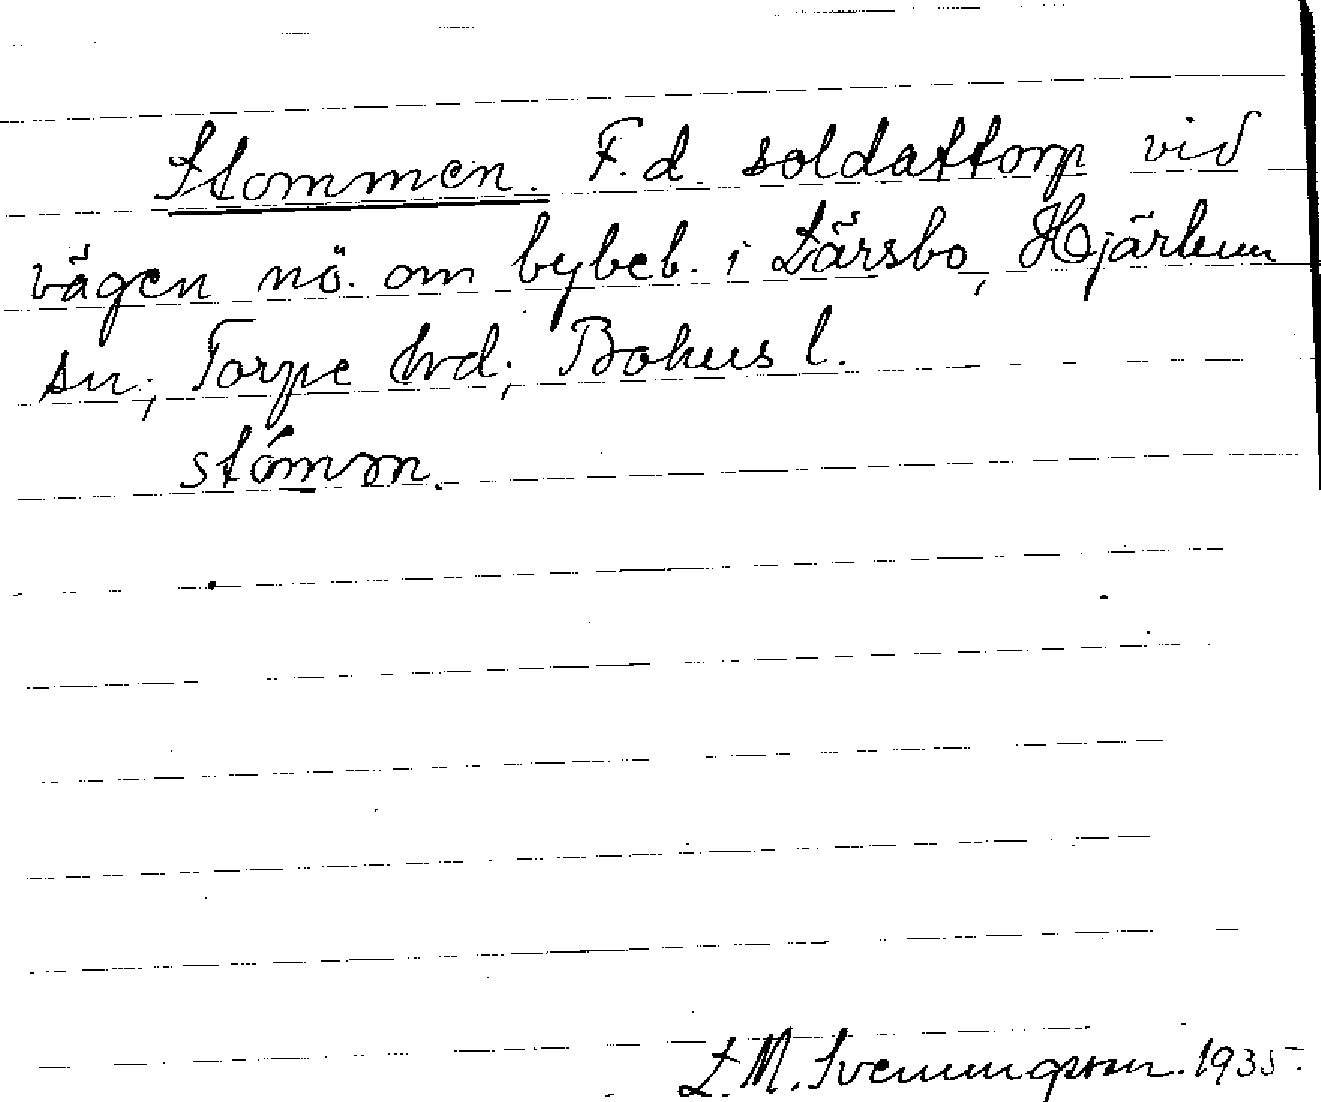 Stommen. F.d. soldattorp vid
vägen nö. om bybeb. i Lärsbo, Hjärtum
sn; Torpe hrd; Bohus l.
stómɔn.
L.M. Svenungsson. 1935.